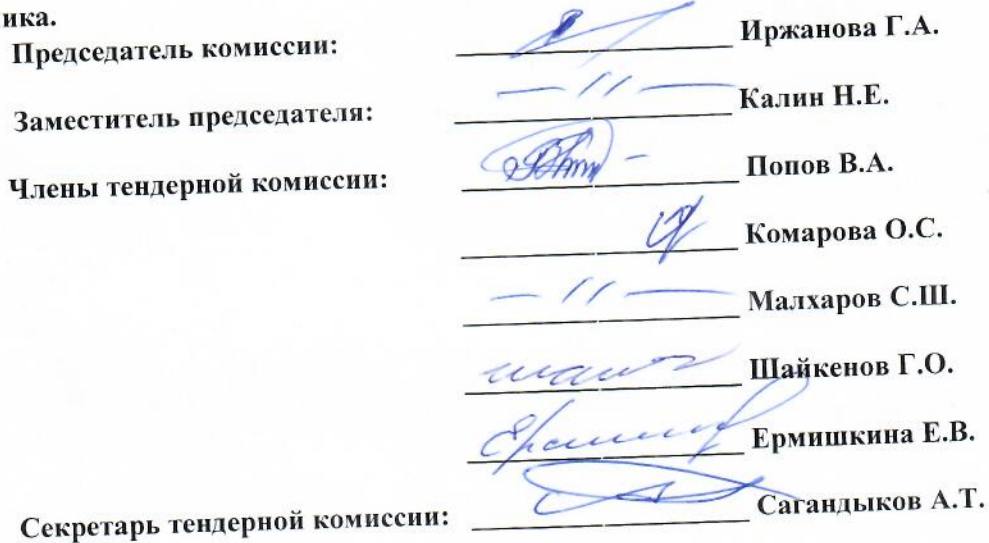 ика.
Председатель комиссии: Иржанова Г.А.
Заместитель председателя: — // — Калин Н.Е.
Члены тендерной комиссии: Попов В.А.
Комарова О.С.
— // — Малхаров С.Ш.
Шайкенов Г.О.
Ермишкина Е.В.
Секретарь тендерной комиссии: Сагандыков А.Т.